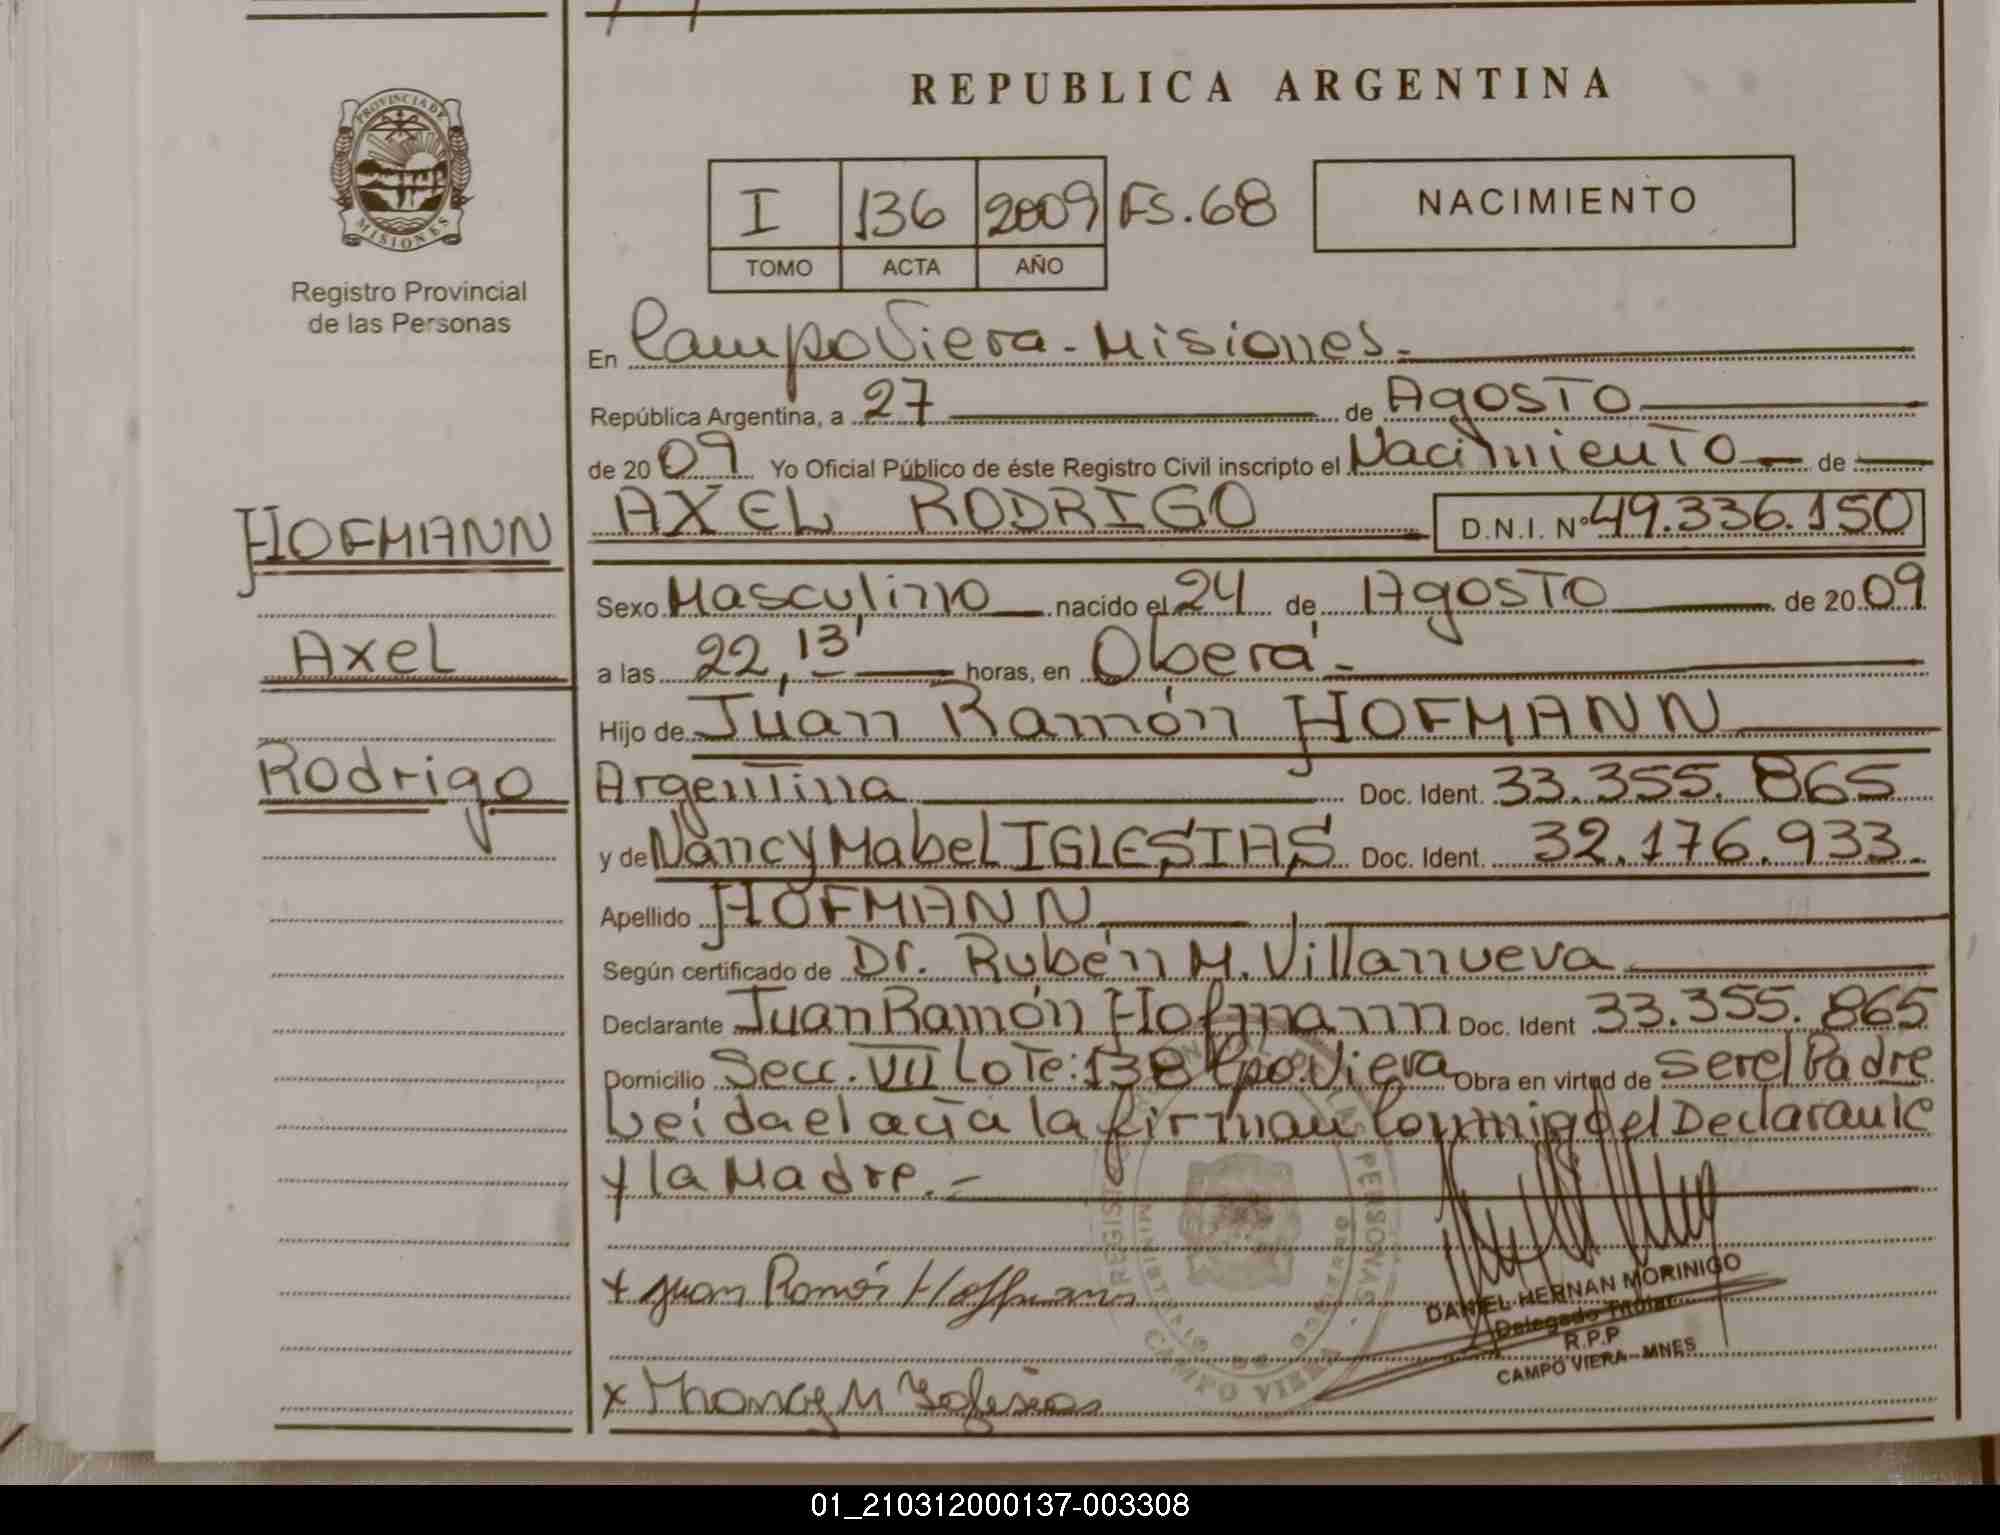 REPUBLICA ARGENTINA
PROVINCIA DE
MISIONES
Registro Provincial
de las Personas
I 136 2009 Fs. 68
TOMO ACTA AÑO
NACIMIENTO
En Campo Viera - Misiones.-
República Argentina, a 27 de Agosto
de 20 09 Yo Oficial Público de éste Registro Civil inscripto el Nacimiento de
AXEL RODRIGO D.N.I. Nº 49.336.150
HOFMANN
Axel
Rodrigo
Sexo Masculino nacido el 24 de Agosto de 20 09
a las 22,13' horas, en Oberá.-
Hijo de Juan Ramón HOFMANN
Argentina Doc. Ident. 33.355.865
y de Nancy Mabel IGLESIAS Doc. Ident. 32.176.933.
Apellido HOFMANN
Según certificado de Dr. Rubén M. Villanueva
Declarante Juan Ramón Hofmann Doc. Ident 33.355.865
Domicilio Secc. VII Lote: 138 Cpo. Viera Obra en virtud de ser el Padre
Leida el acta la firman conmigo el Declarante
y la Madre.-
x Juan Ramón Hoffmann
DANIEL HERNAN MORINIGO
Delegado Titular
R.P.P
CAMPO VIERA - MNES
CAMPO VIERA
x M Iglesias
01_210312000137-003308